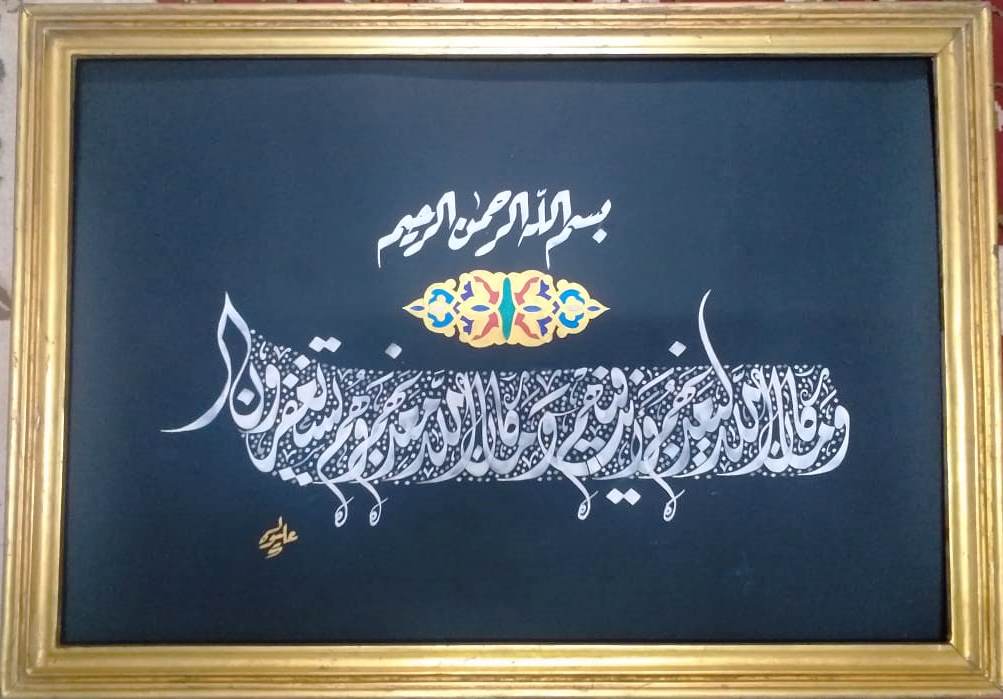 بسم الله الرحمن الرحيم
وما كان الله ليعذبهم وأنت فيهم وما كان الله معذبهم وهم يستغفرون